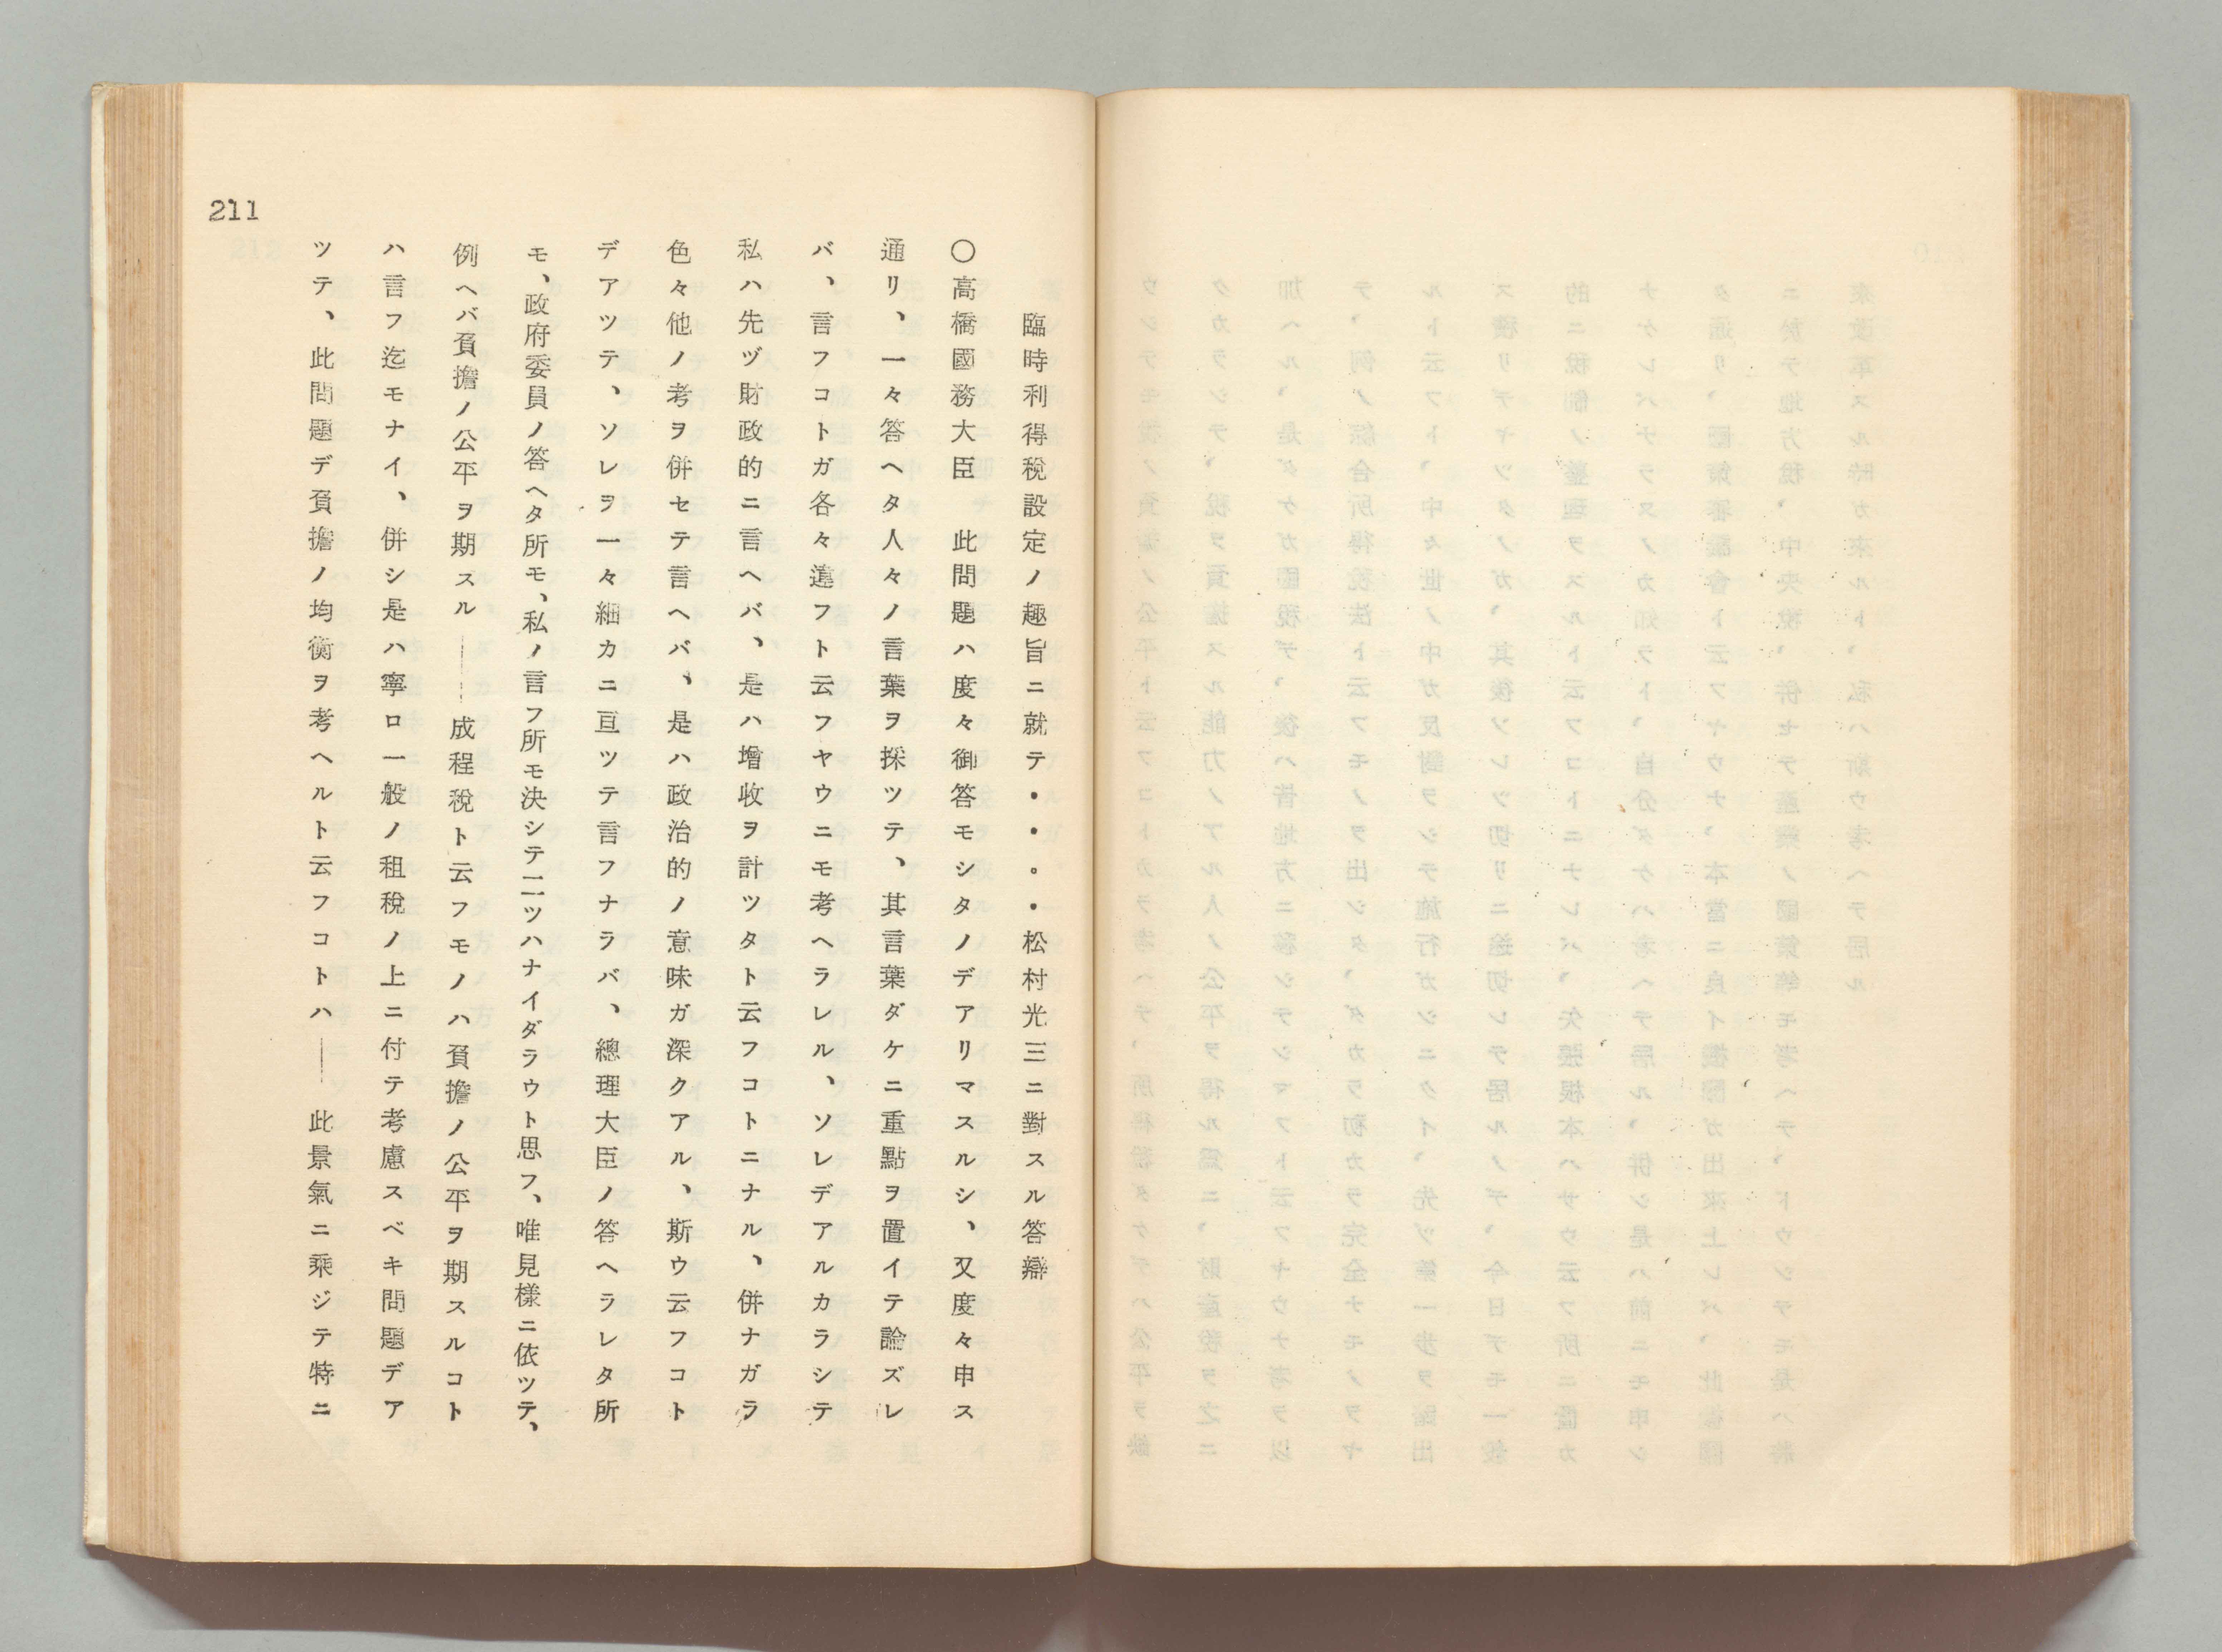 臨時利得稅設定ノ趣旨ニ就テ・・。・松村光三ニ對スル答辯
〇高橋國務大臣　此問題ハ度々御答モシタノデアリマスルシ、又度々申ス
通リ、一々答ヘタ人々ノ言葉ヲ採ツテ、其言葉ダケニ重點ヲ置イテ論ズレ
バ、言フコトガ各々違フト云フヤウニモ考ヘラレル、ソレデアルカラシテ
私ハ先ヅ財政的ニ言ヘバ、是ハ增收ヲ計ツタト云フコトニナル、併ナガラ
色々他ノ考ヲ併セテ言ヘバ、是ハ政治的ノ意味ガ深クアル、斯ウ云フコト
デアツテ、ソレヲ一々細カニ亘ツテ言フナラバ、總理大臣ノ答ヘラレタ所
モ、政府委員ノ答ヘタ所モ、私ノ言フ所モ決シテ二ツハナイダラウト思フ、唯見樣ニ依ツテ、
例ヘバ負擔ノ公平ヲ期スル――成程稅ト云フモノハ負擔ノ公平ヲ期スルコト
ハ言フ迄モナイ、併シ是ハ寧ロ一般ノ租稅ノ上ニ付テ考慮スベキ問題デア
ツテ、此問題デ負擔ノ均衡ヲ考ヘルト云フコトハ――此景氣ニ乘ジテ特ニ
211